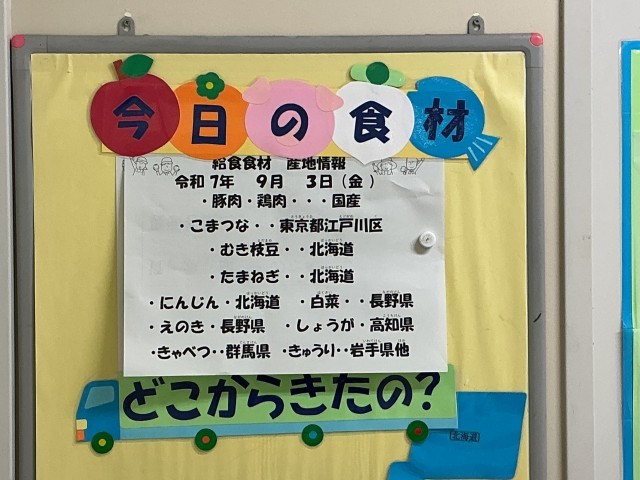 今日の食材
給食食材 産地情報
令和 7年 9月 3日(金)
・豚肉・鶏肉・・・国産
・こまつな・・東京都江戸川区
・むき枝豆・・北海道
・たまねぎ・・北海道
・にんじん・北海道 ・白菜・・長野県
・えのき・長野県 ・しょうが・高知県
・きゃべつ・・群馬県 ・きゅうり・・岩手県他
どこからきたの?
北海道